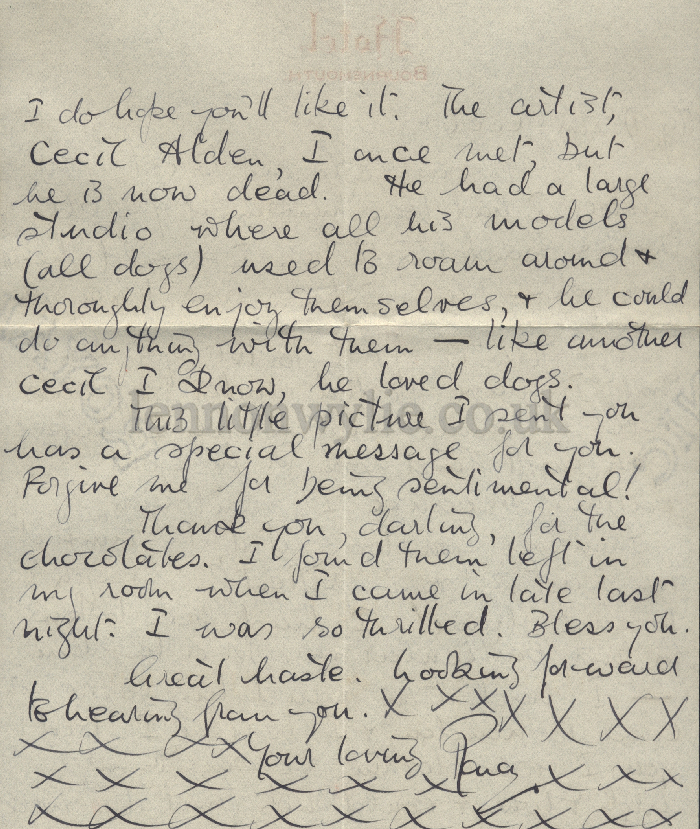 Hotel
BOURNEMOUTH
I do hope you'll like it. The artist,
Cecil Alden, I once met, but
he is now dead. He had a large
studio where all his models
(all dogs) used to roam around &
thoroughly enjoy themselves, & he could
do anything with them — like another
Cecil I know, he loved dogs.
This little picture I sent you
lennonwylie.co.uk
has a special message for you.
Forgive me for being sentimental!
Thank you, darling, for the
chocolates. I found them left in
my room when I came in late last
night. I was so thrilled. Bless you.
Great haste. Looking forward
to hearing from you. X X X X X X X X
X X X X Your loving
X X X X X X X X X
X X X X X X X X X X